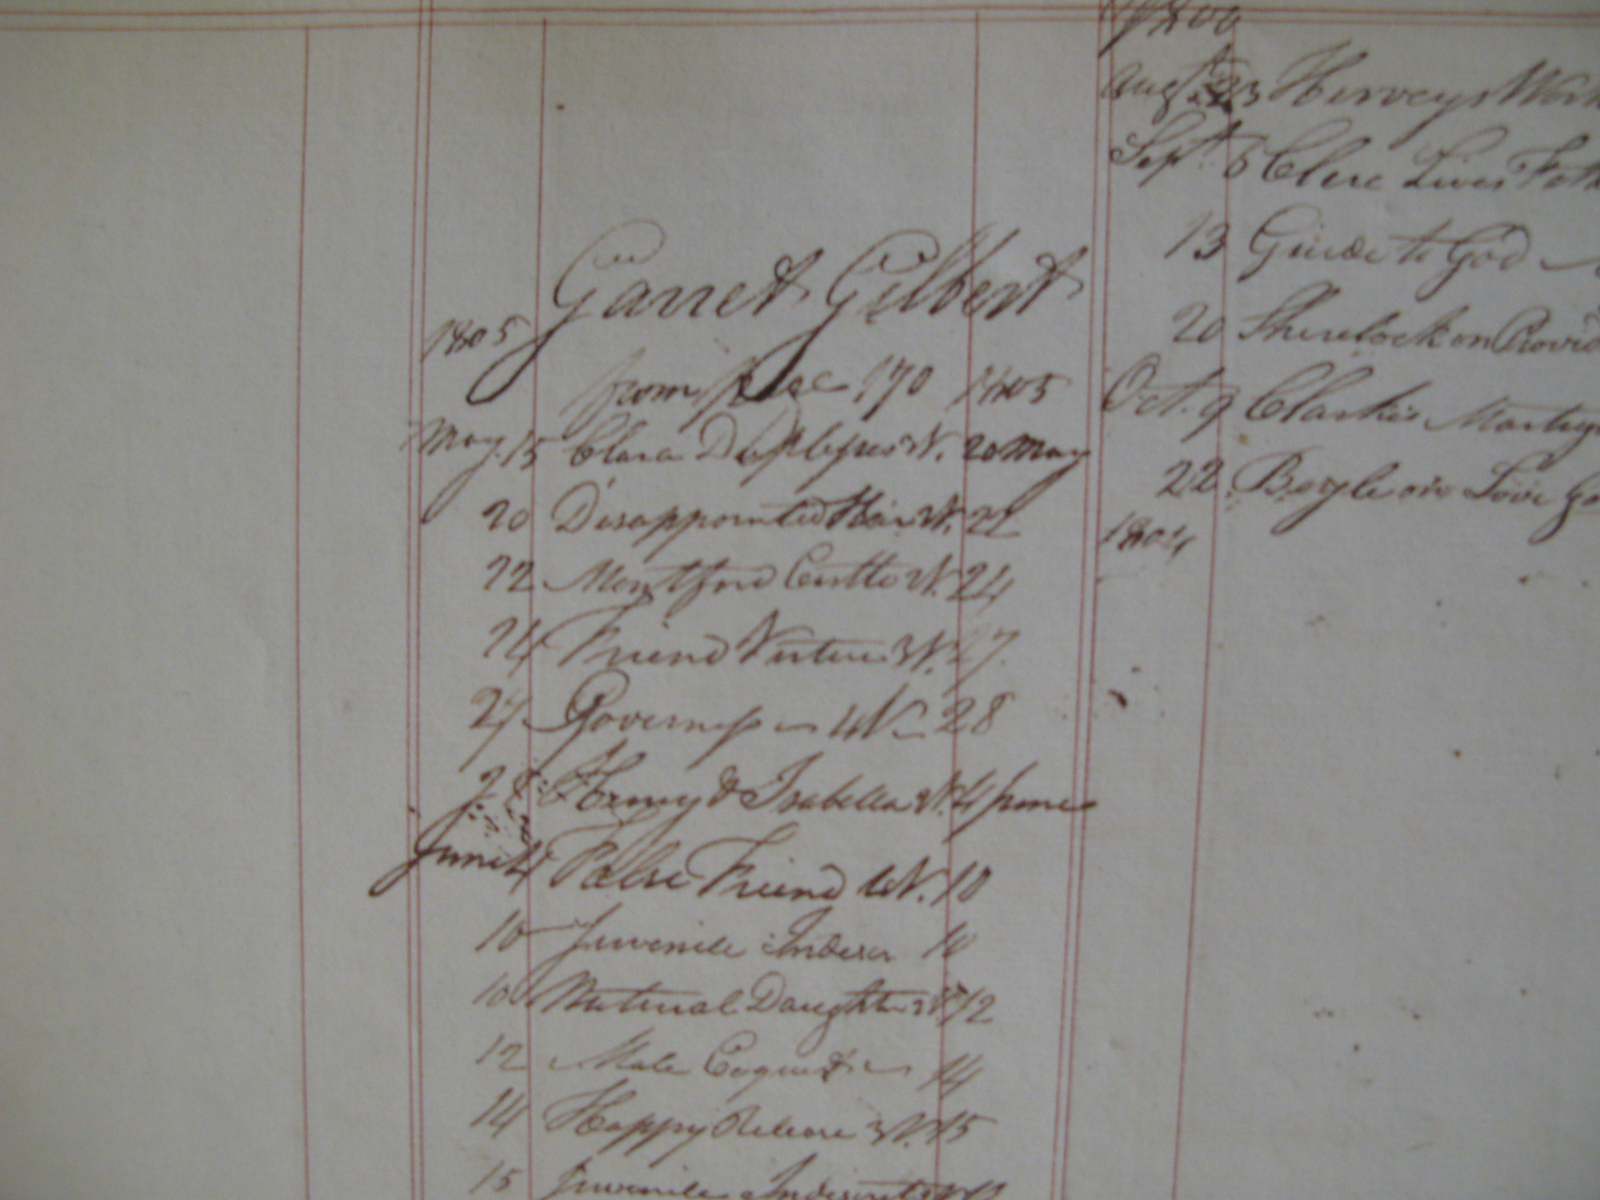 Garret Gilbert
1805
from page 170 1805
May 15 Clara Duplessis W. 20 May
20 Disappointed Heir W. 22
22 Montford Castle W. 24
24 Friend Virtue W. 27
27 Governess W 28
28 Henry & Isabella W. 4 June
June 4 False Friend W. 10
10 Juvenile Indiscr 10
10 Natural Daughter W 12
12 Male Coquet 14
14 Happy Release W. 15
15 Juvenile Indiscret
1800
Augt. 23 Herveys Work
Sept. 6 Clere Lives Fath
13 Guide to God
20 Sherelock on Provid
Oct. 9 Clarkes Martyr
22 on Love Go
1804